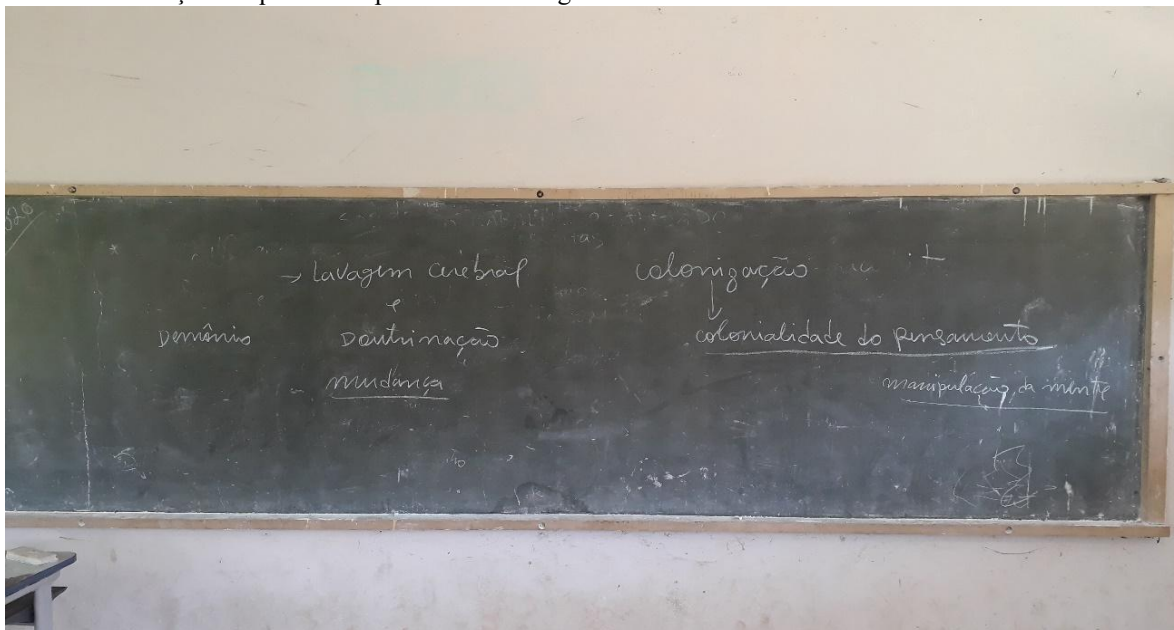 → Lavagem cerebral
e
Demônio Doutrinação
- mudança
colonização
↓
colonialidade do pensamento
manipulação da mente